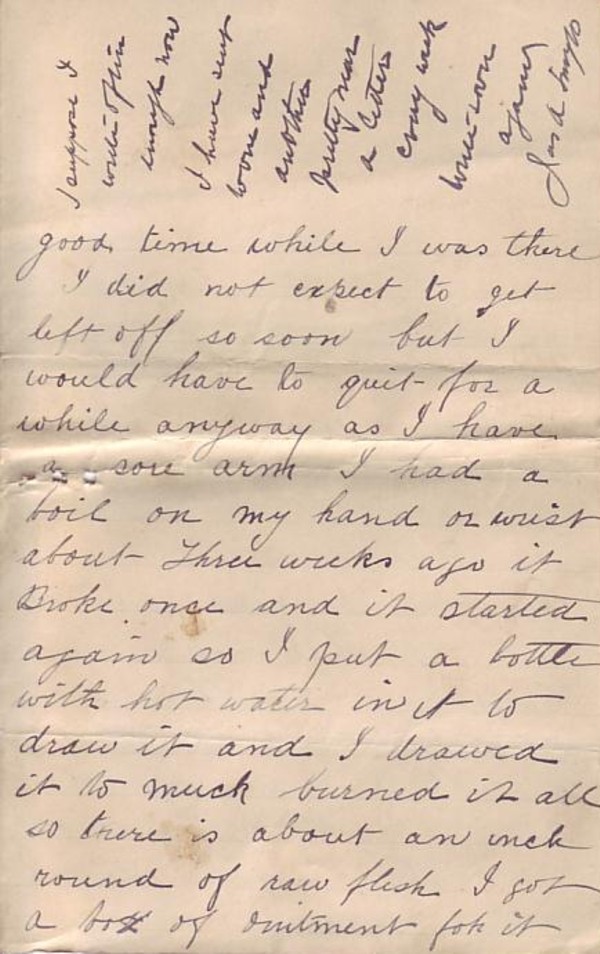 I suppose I
write often
enough now
I have sent
wone and
another
pretty near
a letter
evry week
write soon
again
good time while I was there
I did not expect to get
left off so soon but I
would have to quit for a
while anyway as I have
a sore arm I had a
boil on my hand or wrist
about three weeks ago it
Broke once and it started
again so I put a bottle
with hot water in it to
draw it and I drawed
it to much burned it all
so there is about an inch
round of raw flesh I got
a box of ointment for it